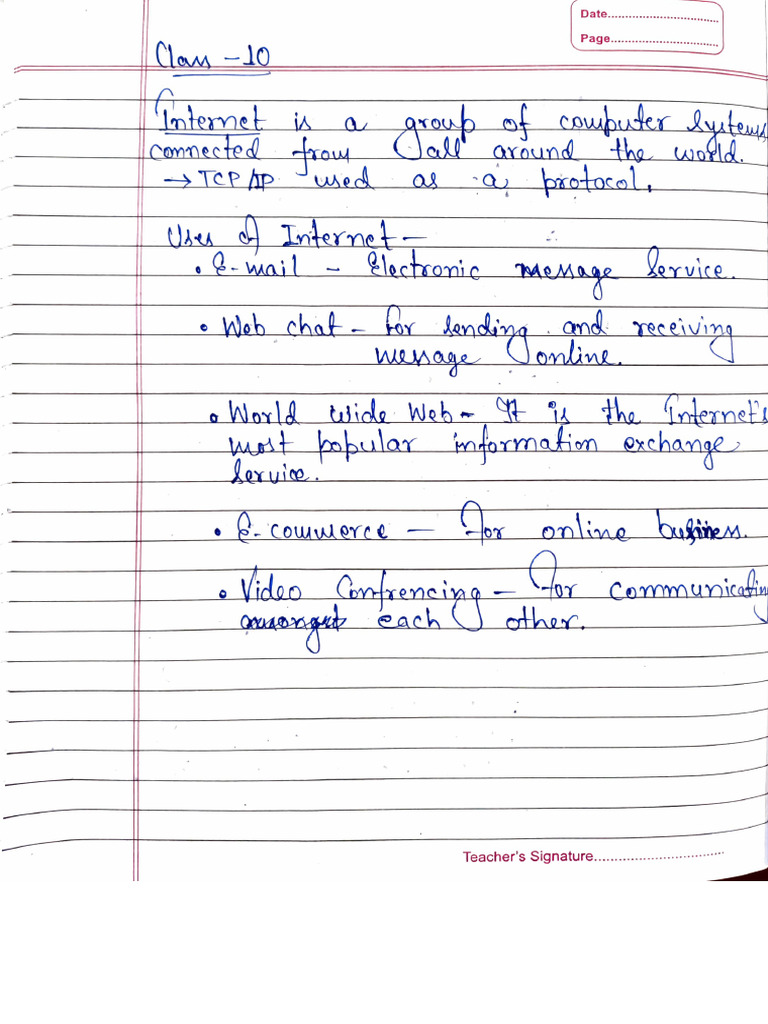 Date
Page
Class - 10
Internet is a group of computer systems
connected from all around the world.
→ TCP/IP used as a protocol.
Uses of Internet -
• E-mail - Electronic message service.
• Web chat - for sending and receiving
message online.
• World wide Web - It is the Internet's
most popular information exchange
service.
• E-commerce - For online business.
• Video Confrencing - For communicating
amongst each other.
Teacher's Signature